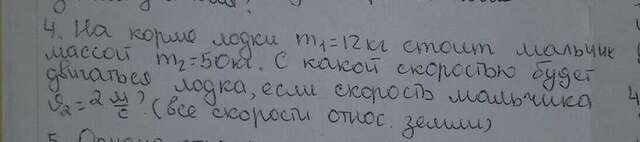 4. На корме лодки m₁=12кг стоит мальчик
массой m₂=50кг. С какой скоростью будет
двигаться лодка, если скорость мальчика
𝜗₂=2 м/с? (все скорости относ. земли)
5.